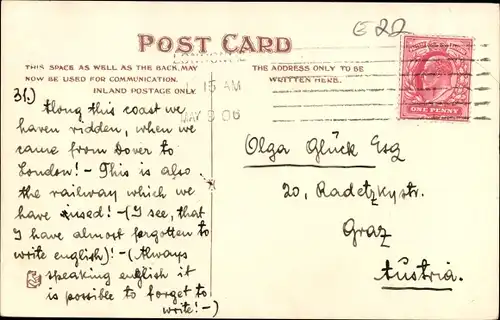 E 20
POST CARD
LONDON
THIS SPACE AS WELL AS THE BACK, MAY
NOW BE USED FOR COMMUNICATION.
INLAND POSTAGE ONLY.
THE ADDRESS ONLY TO BE
WRITTEN HERE.
15 AM
MAY 9 06
ONE PENNY
31.)
Along this coast we
haven ridden, when we
came from Dover to
London! - This is also
the railway which we
have used! - (I see, that
I have almost forgotten to
write english)! - (Always
speaking english it
is possible to forget to
write! -)
Olga Glück Esq
20, Radetzkystr.
Graz
Austria.